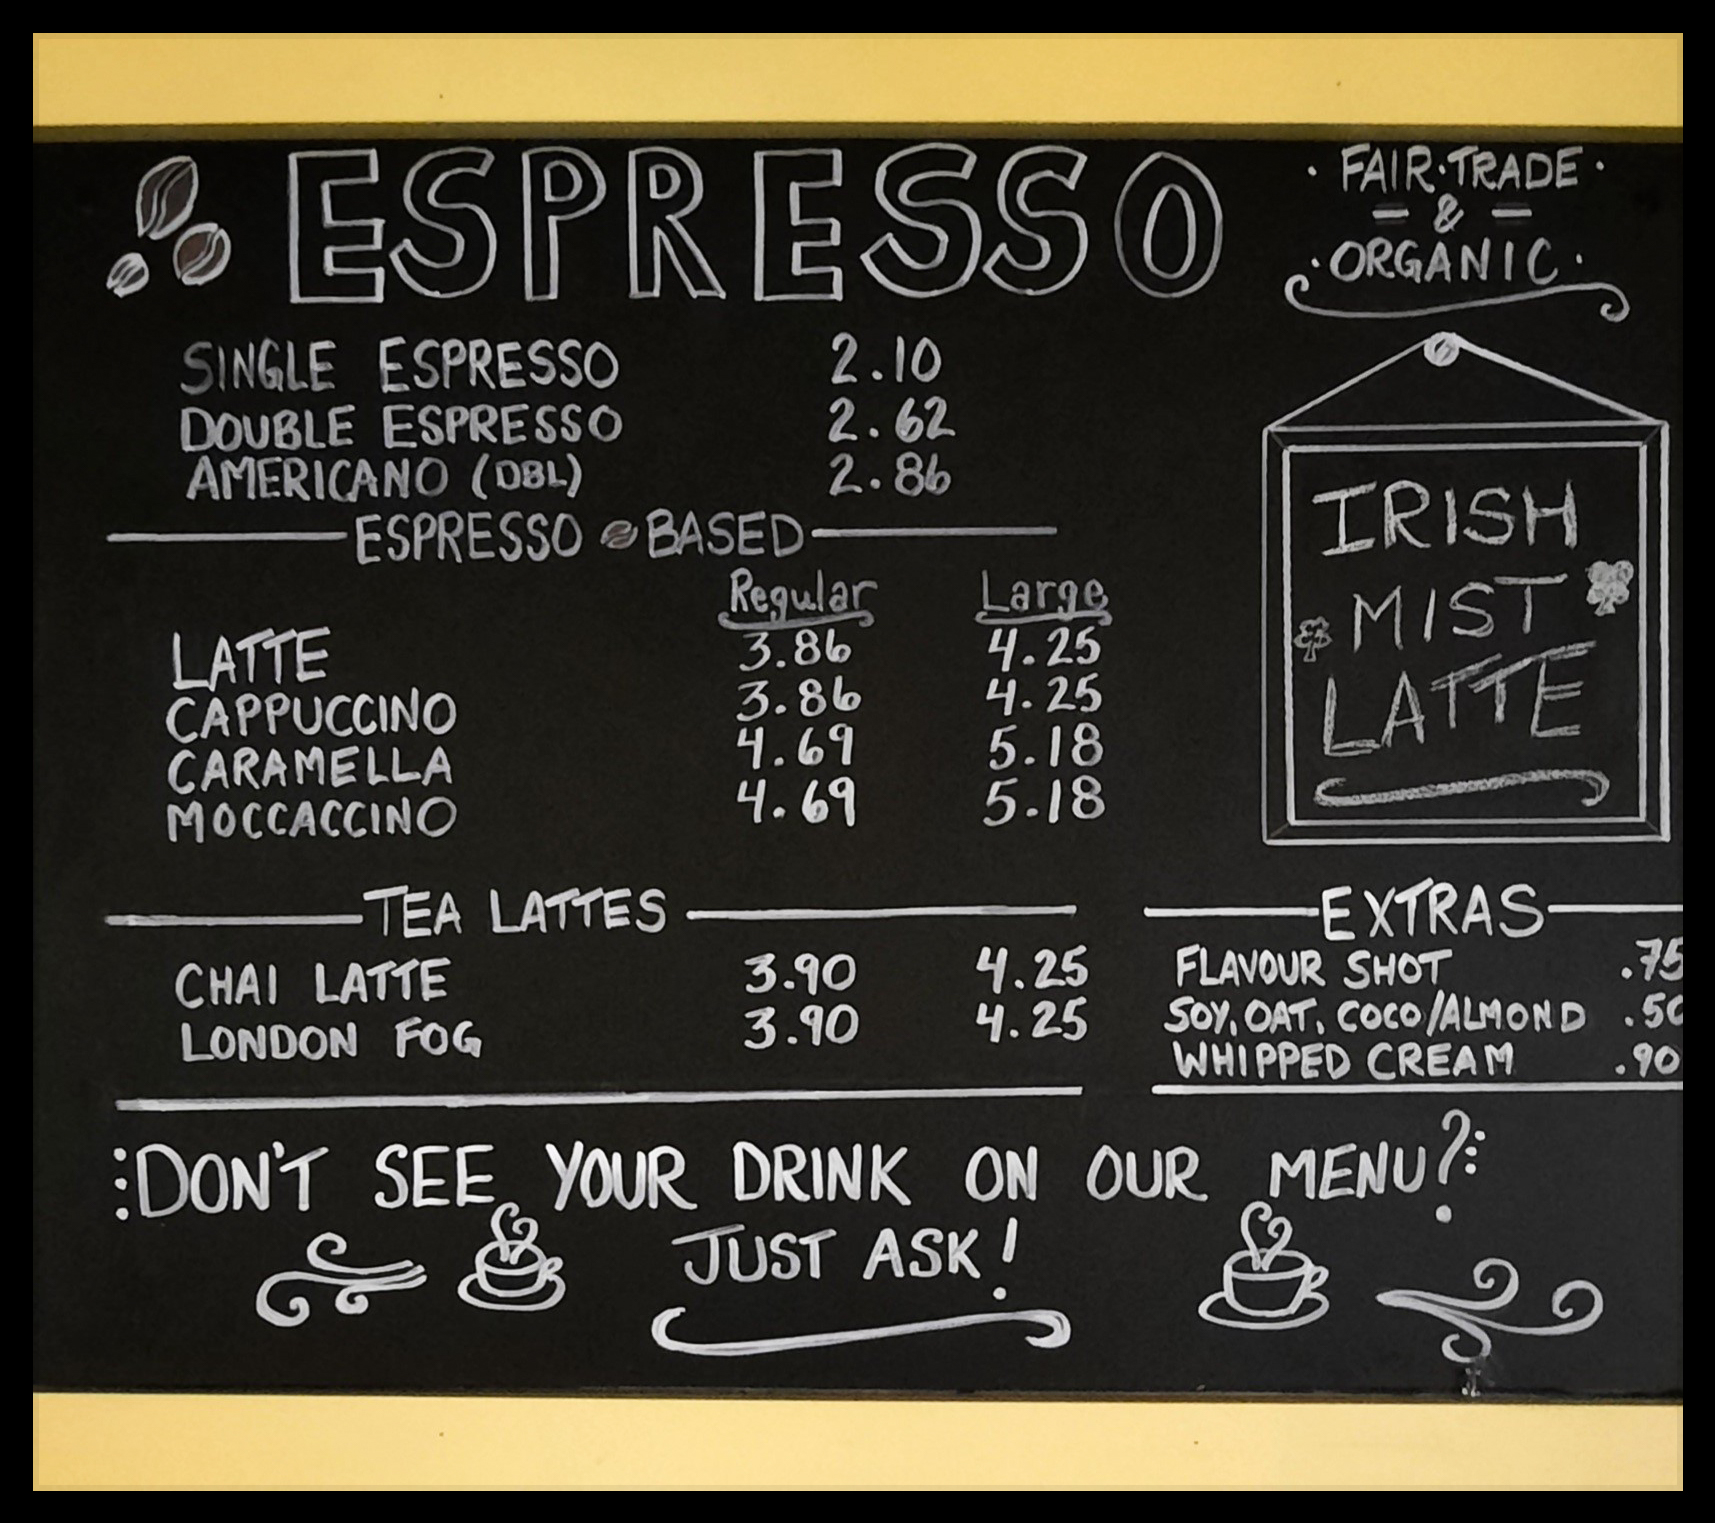 ESPRESSO
SINGLE ESPRESSO 2.10
DOUBLE ESPRESSO 2.62
AMERICANO (DBL) 2.86
ESPRESSO BASED
Regular Large
LATTE 3.86 4.25
CAPPUCCINO 3.86 4.25
CARAMELLA 4.69 5.18
MOCCACCINO 4.69 5.18
TEA LATTES
CHAI LATTE 3.90 4.25
LONDON FOG 3.90 4.25
· FAIR·TRADE ·
- & -
· ORGANIC ·
IRISH
MIST
LATTE
EXTRAS
FLAVOUR SHOT .75
SOY, OAT, COCO/ALMOND .50
WHIPPED CREAM .90
DON'T SEE YOUR DRINK ON OUR MENU?
JUST ASK!